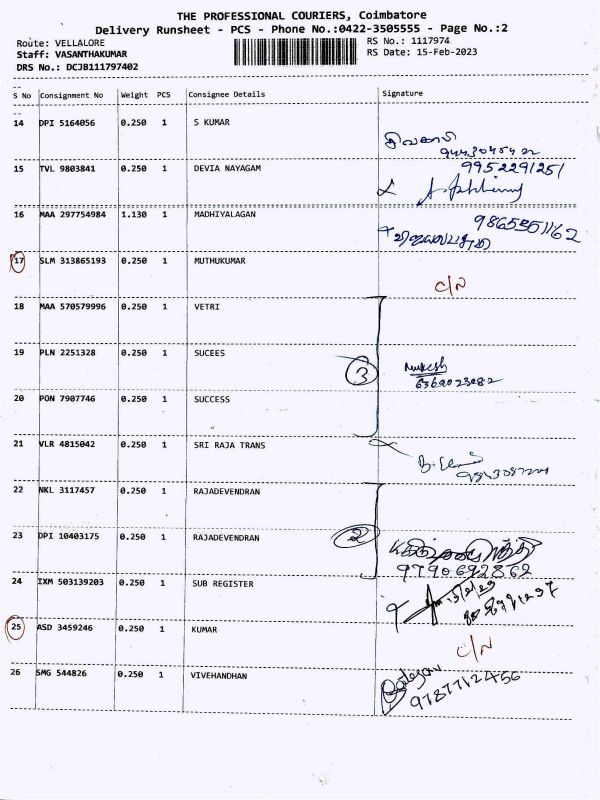 THE PROFESSIONAL COURIERS, Coimbatore
Delivery Runsheet - PCS - Phone No.:0422-3505555 - Page No.:2
Route: VELLALORE
RS No.: 1117974
Staff: VASANTHAKUMAR
RS Date: 15-Feb-2023
DRS No.: DCJB111797402
S No Consignment No Weight PCS Consignee Details Signature
14 DPI 5164056 0.250 1 S KUMAR
15 TVL 9803841 0.250 1 DEVIA NAYAGAM 9952291251
16 MAA 297754984 1.130 1 MADHIYALAGAN 9865551162
17 SLM 313865193 0.250 1 MUTHUKUMAR C/N
18 MAA 570579996 0.250 1 VETRI
19 PLN 2251328 0.250 1 SUCEES 3 Mukesh
6369023082
20 PON 7907746 0.250 1 SUCCESS
21 VLR 4815042 0.250 1 SRI RAJA TRANS
22 NKL 3117457 0.250 1 RAJADEVENDRAN
23 DPI 10403175 0.250 1 RAJADEVENDRAN 2
9790692862
24 IXM 503139203 0.250 1 SUB REGISTER
25 ASD 3459246 0.250 1 KUMAR C/N
26 SMG 544826 0.250 1 VIVEHANDHAN 9787712456